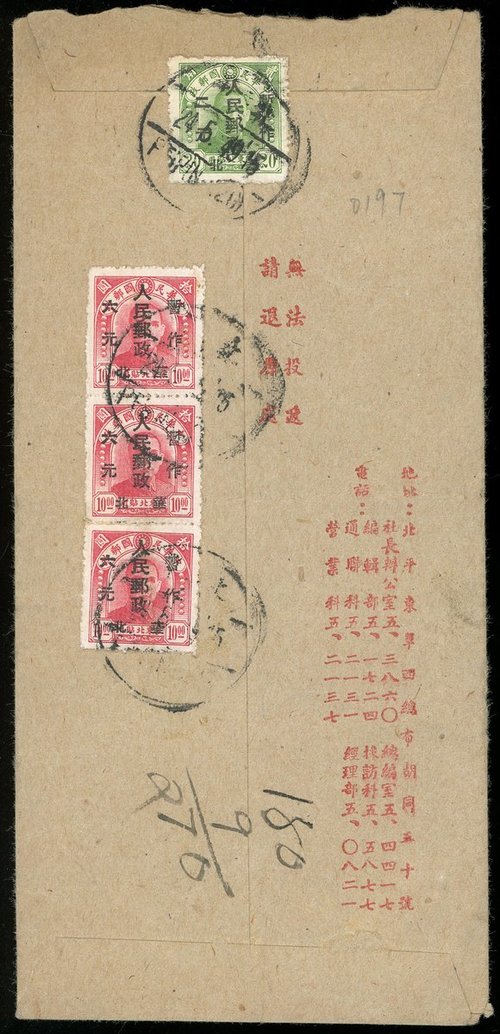 人民郵政
暫作
二元
華北
20
0197
無法投遞
請退原處
人民郵政
暫作
六元
華北
10.00
人民郵政
暫作
六元
華北
10.00
人民郵政
暫作
六元
華北
10.00
地址：北平東單西總布胡同五十號
電話：
社長辦公室五、三八六〇　總編室五、四四一七
編輯部五、一七二四　採訪科五、五八七七
通聯科五、二一三一　經理部五、〇八二一
營業科五、二一三七
180
9
270